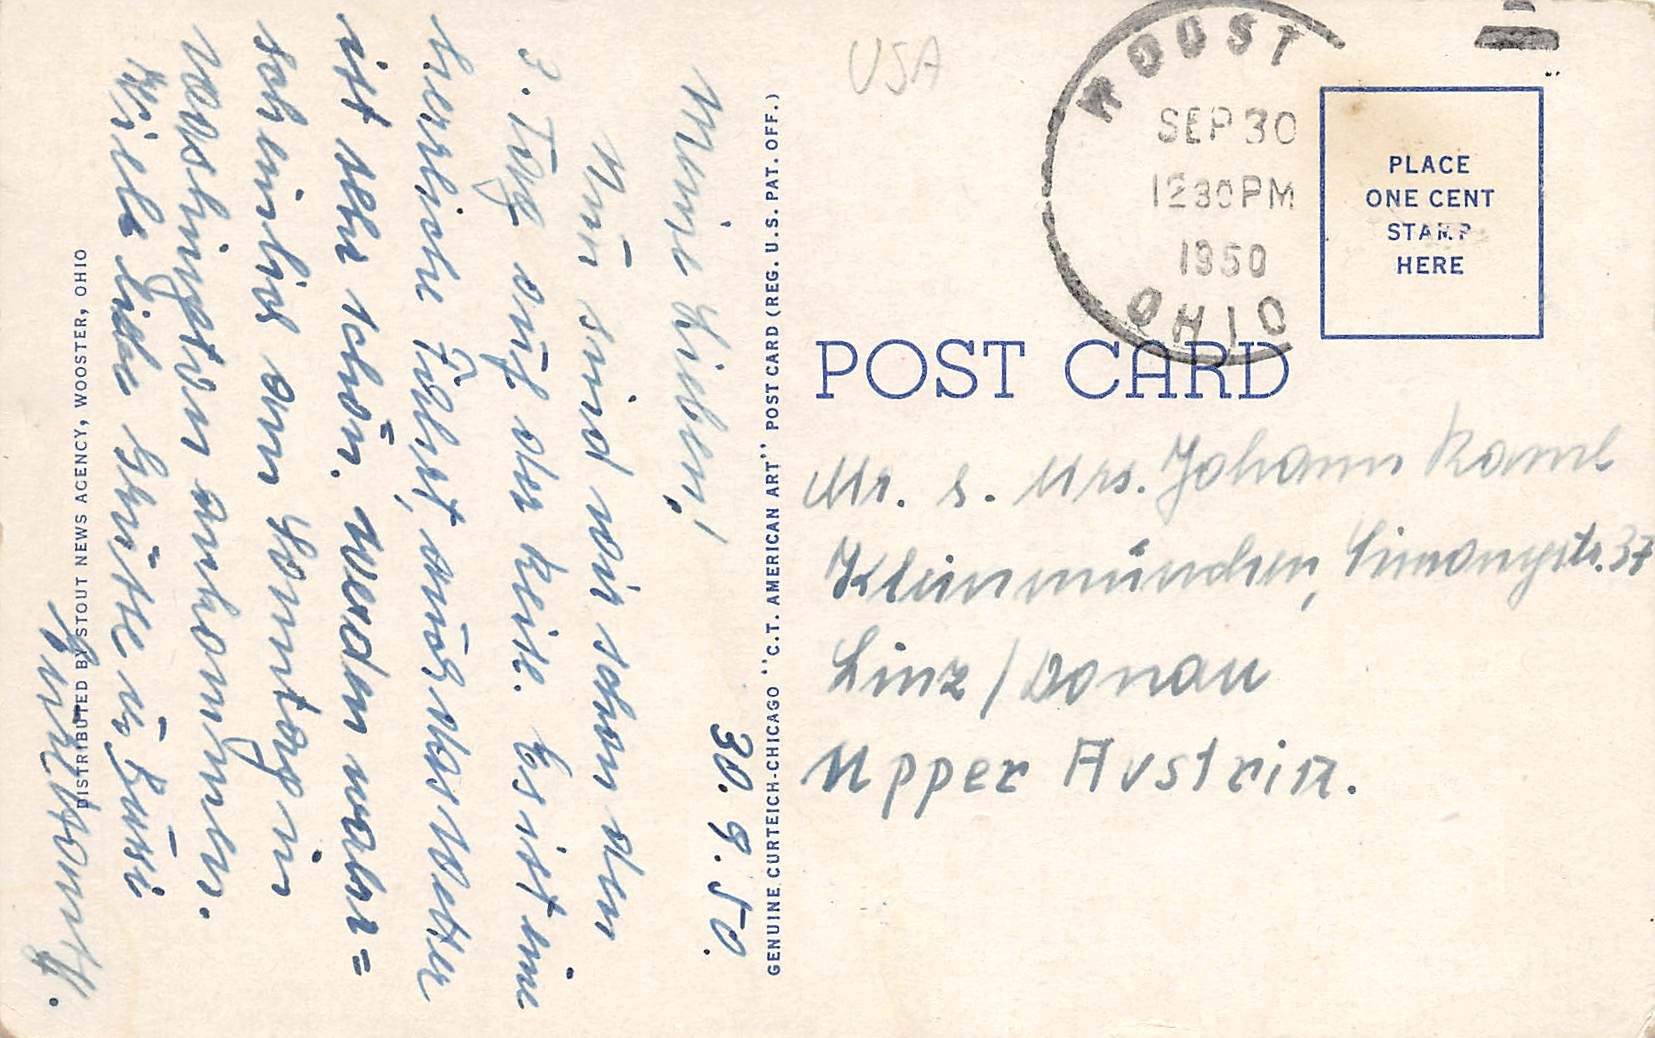 30. 9. 50.
Meine Lieben!
Nun sind wir schon den
3. Tag auf der Reise. Es ist eine
herrliche Fahrt, auch das Wetter
ist sehr schön. Werden wahr=
scheinlich am Sonntag in
Washington ankommen.
Viele liebe Grüße u. Bussi
DISTRIBUTED BY STOUT NEWS AGENCY, WOOSTER, OHIO
GENUINE CURTEICH-CHICAGO "C.T. AMERICAN ART" POST CARD (REG. U.S. PAT. OFF.)
USA
WOOST
SEP 30
1230PM
1950
OHIO
PLACE
ONE CENT
STAMP
HERE
POST CARD
Mr. s. Mrs. Johann Raml
Kleinmünchen, Simonystr. 37
Linz / Donau
Upper Austria.